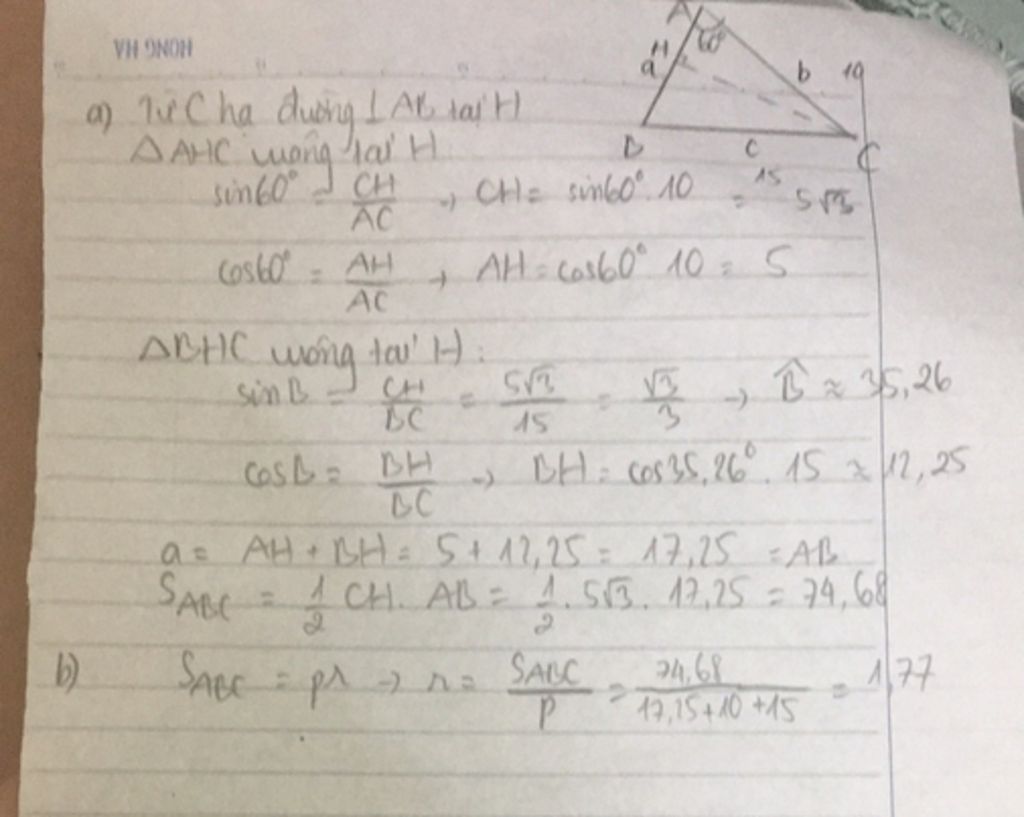 HONG HA
A
60°
H
a
b 10
B
c
15
C
a) Từ C hạ đường ⊥ AB tại H
ΔAHC vuông tại H
sin60° = CH/AC → CH = sin60°.10 = 5√3
cos60° = AH/AC → AH = cos60° 10 = 5
ΔBHC vuông tại H:
sinB = CH/BC = 5√3/15 = √3/3 → B̂ ≈ 35,26
cosB = BH/BC → BH = cos35,26°. 15 ≈ 12,25
a = AH + BH = 5 + 12,25 = 17,25 = AB
S_ABC = 1/2 CH. AB = 1/2. 5√3. 17,25 = 74,68
b) S_ABC = pr → r = S_ABC/p = 74,68/17,25+10+15 = 1,77